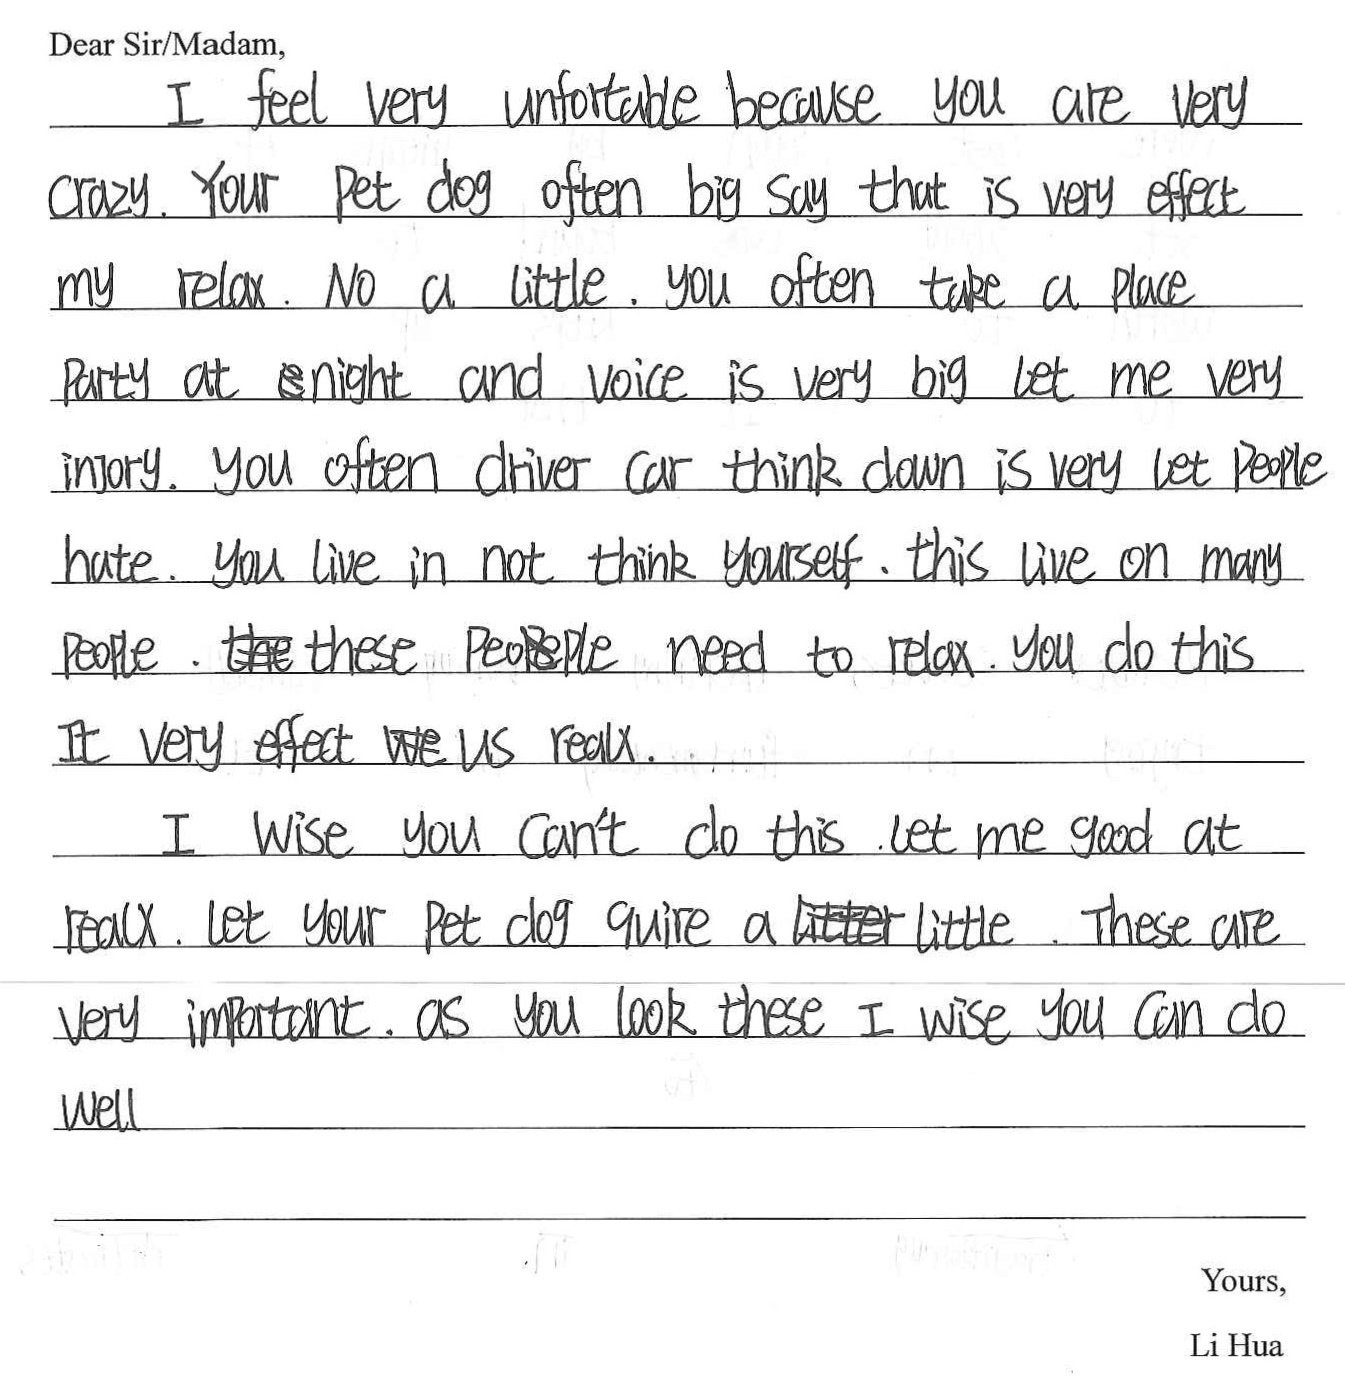 Dear Sir/Madam,
I feel very unfortable because you are very
crazy. Your pet dog often big say that is very effect
my relax. No a little. you often take a place
party at night and voice is very big let me very
injory. you often driver car think down is very let people
hate. you live in not think yourself. this live on many
people. these people need to relax. you do this
It very effect us realx.
I wise you can't do this. let me good at
realx. let your pet dog quire a little. These are
very important. as you look these I wise you can do
well
Yours,
Li Hua